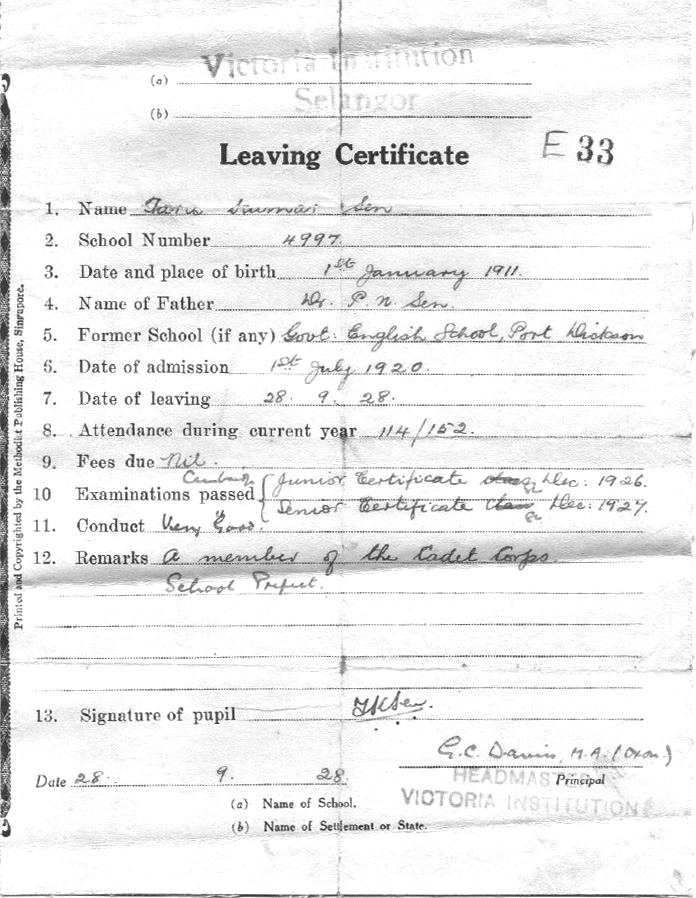 Victoria Institution
(a)
Selangor
(b)
Leaving Certificate
E 33
1. Name Kumar Sen
2. School Number 4997.
3. Date and place of birth 1st January 1911.
4. Name of Father Dr. P. N. Sen.
5. Former School (if any) Govt: English School, Port Dickson
6. Date of admission 1st July 1920.
7. Date of leaving 28. 9. 28.
8. Attendance during current year 114/152.
9. Fees due Nil.
10 Examinations passed Junior Certificate Dec: 1926.
Senior Certificate Dec: 1927.
11. Conduct Very Good.
12. Remarks A member of the Cadet Corps.
School Prefect.
13. Signature of pupil TKSen.
G.C. Davies, M.A. (Oxon.)
Date 28. 9. 28.
HEADMASTER
Principal
VICTORIA INSTITUTION
(a) Name of School.
(b) Name of Settlement or State.
Printed and Copyrighted by the Methodist Publishing House, Singapore.